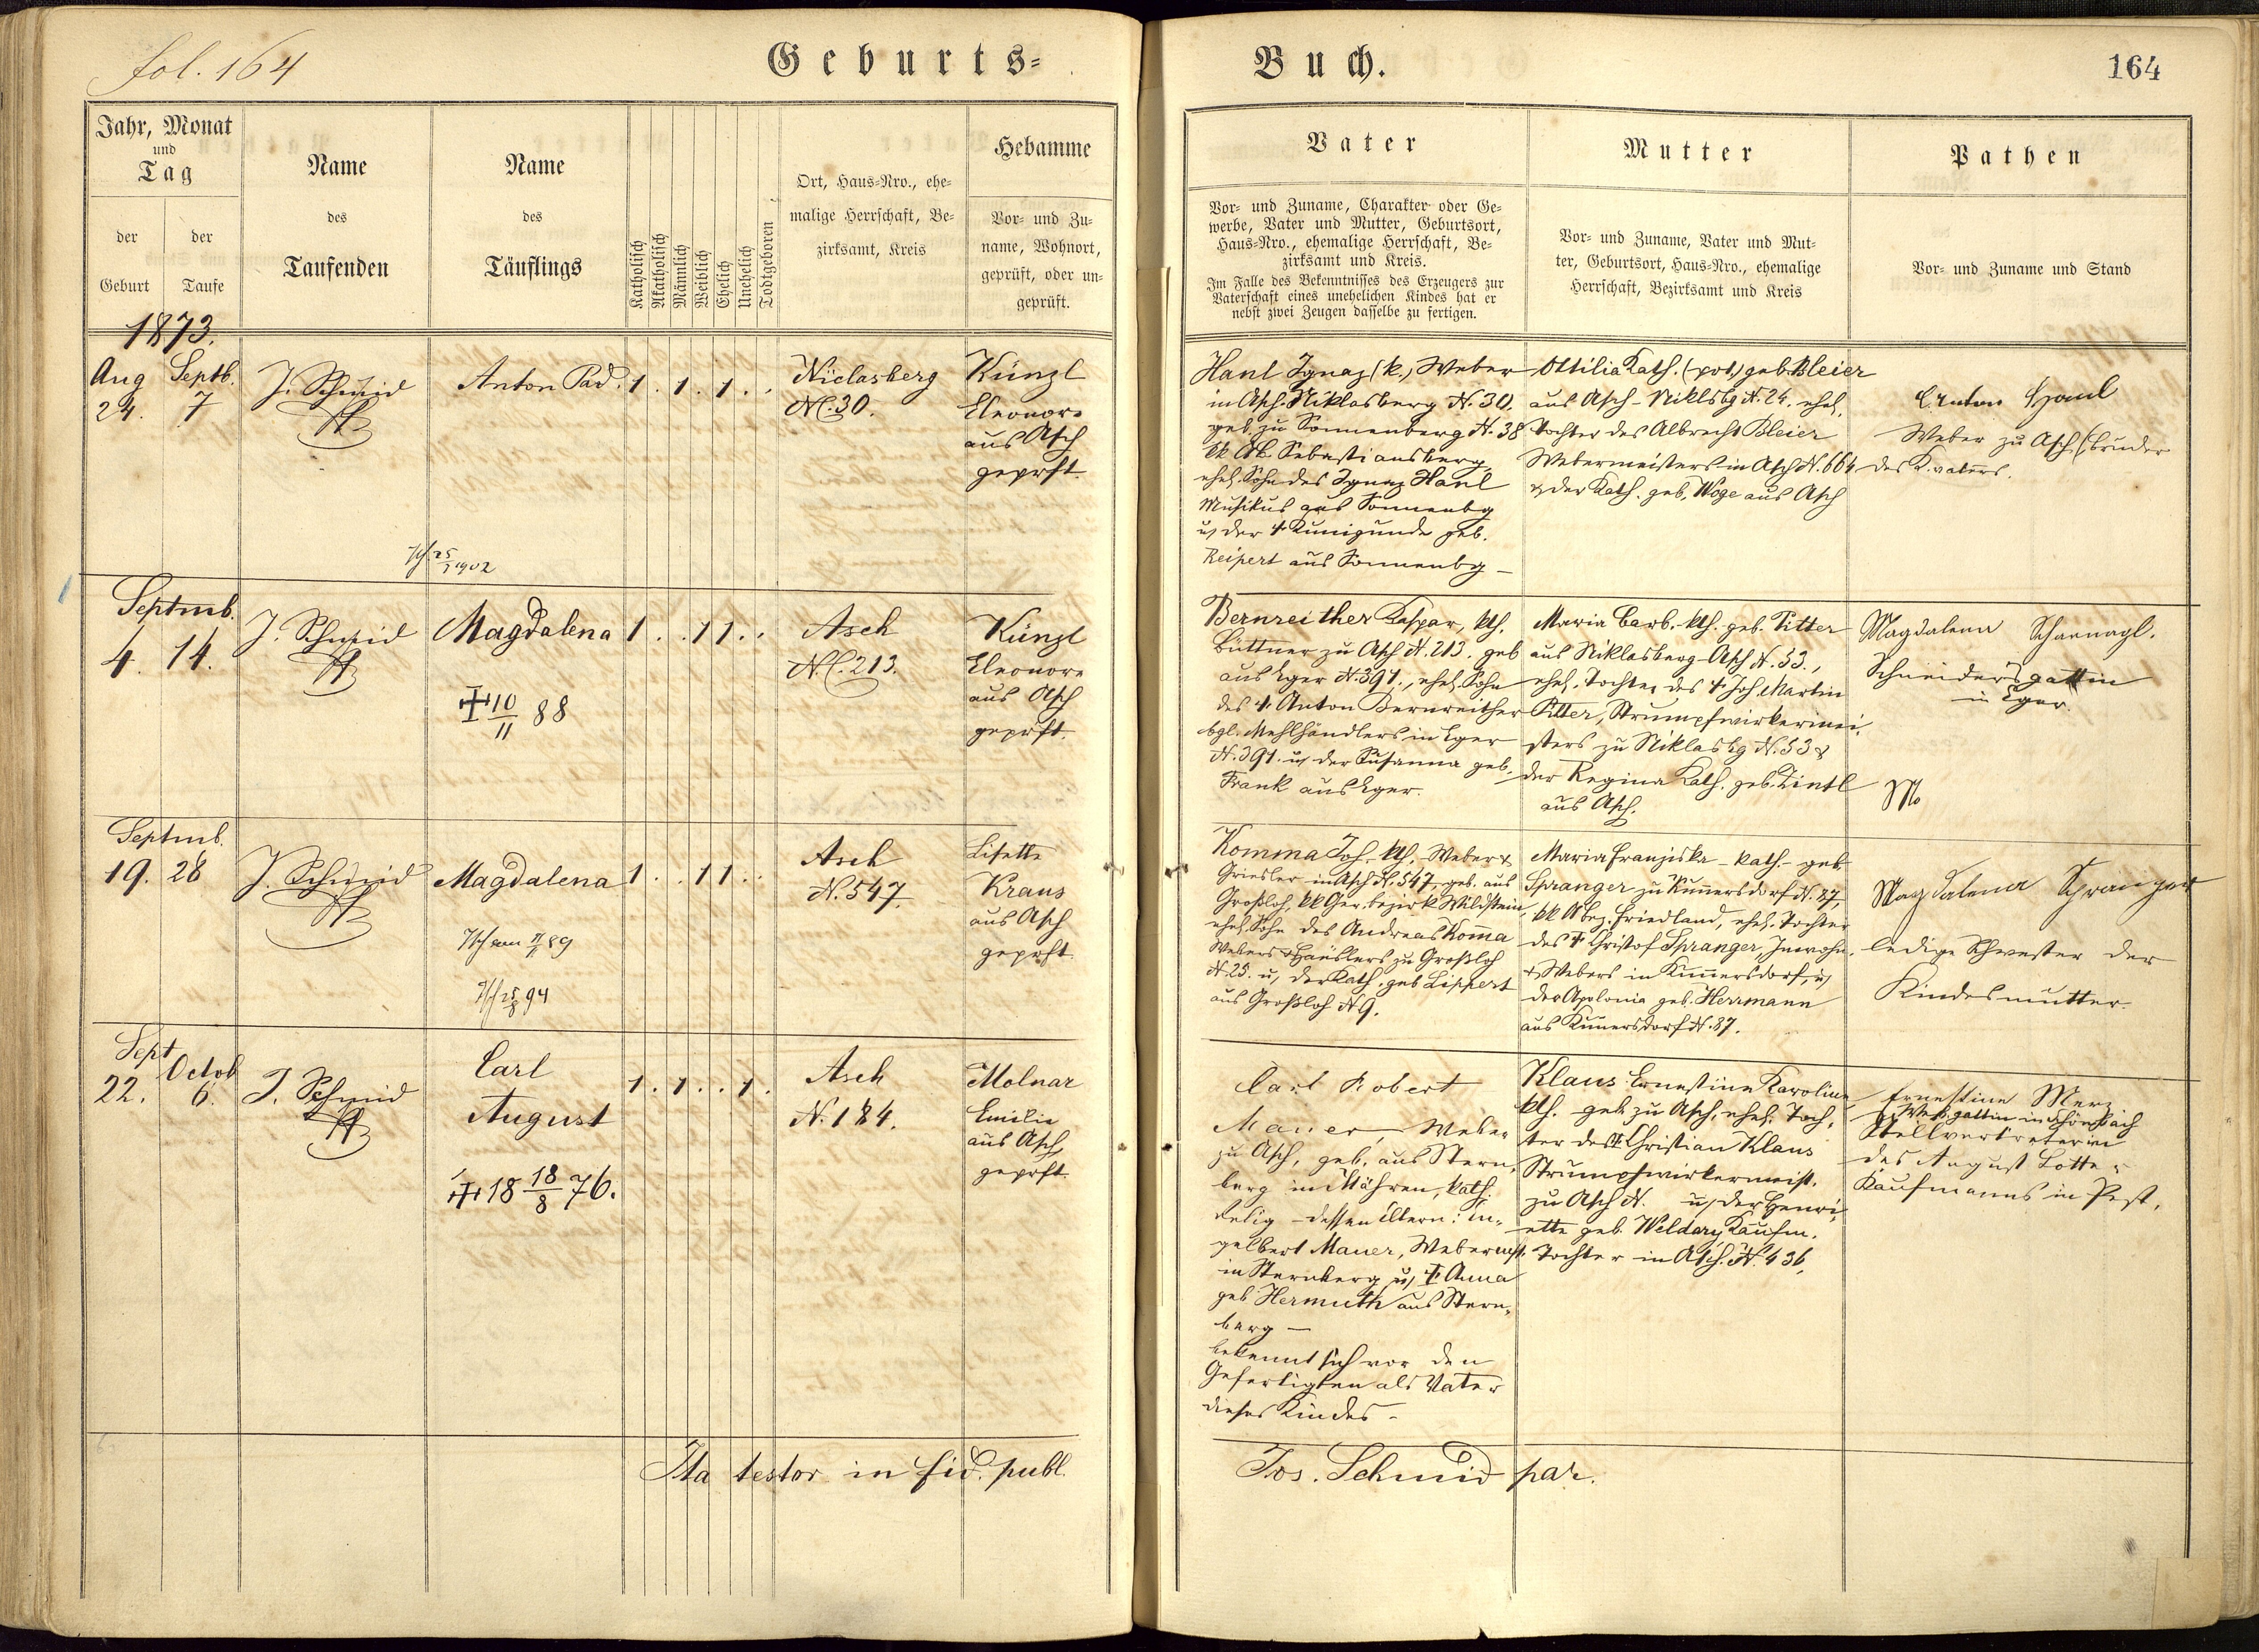 fol. 164
Geburts=
Buch.
164
Jahr, Monat
und
Tag
der
Geburt
der
Taufe
Name
des
Taufenden
Name
des
Täuflings
Katholisch
Akatholisch
Männlich
Weiblich
Ehelich
Unehelich
Todtgeboren
Ort, Haus=Nro., ehe=
malige Herrschaft, Be=
zirksamt, Kreis
Hebamme
Vor= und Zu=
name, Wohnort,
geprüft, oder un=
geprüft.
Vater
Vor= und Zuname, Charakter oder Ge=
werbe, Vater und Mutter, Geburtsort,
Haus=Nro., ehemalige Herrschaft, Be=
zirksamt und Kreis.
Im Falle des Bekenntnisses des Erzeugers zur
Vaterschaft eines unehelichen Kindes hat er
nebst zwei Zeugen dasselbe zu fertigen.
Mutter
Vor= und Zuname, Vater und Mut=
ter, Geburtsort, Haus=Nro., ehemalige
Herrschaft, Bezirksamt und Kreis
Pathen
Vor= und Zuname und Stand
1873.
Aug Septb.
24. 7
J. Schmid
Anton Pad.
1 . 1 . 1 . .
Niclasberg
N. 30.
Künzl
Eleonore
aus Asch
geprft.
25/7 1902
Hanl Ignaz (k.) Weber
in Asch-Niklasberg N. 30.
geb. zu Sonnenberg N. 38
Sebastiansberg,
ehel. Sohn des Ignaz Hanl
Musikus aus Sonnenbg
u. der † Kunigunde geb.
Reipert aus Sonnenbg –
Ottilia Kath. (prot.) geb. Bleier
aus Asch – Niklsbg N. 24. ehel.
Tochter des Albrecht Bleier
Webermeisters in Asch N. 664
& der Kath. geb. Woge aus Asch
Anton Hanl
Weber zu Asch (Bruder
des K.vaters.
Septmb.
4. 14.
J. Schmid
Magdalena
1 . . 1 1 . .
Asch
N. 213.
Künzl
Eleonore
aus Asch
geprft.
10/11 88
Bernreither Kaspar, kth.
Büttner zu Asch N. 213. geb
aus Eger N. 391., ehel. Sohn
des † Anton Bernreither
bgl. Mehlhändlers in Eger
N. 391. u. der Susanna geb.
Frank aus Eger.
Maria Barb. kth. geb. Ritter
aus Niklasberg-Asch N. 53.,
ehel. Tochter des † Joh. Martin
Ritter, Strumpfwirkermei.
sters zu Niklasbg N. 53 &
der Regina Kath. geb. Zintl
aus Asch.
Magdalena Scharnagl.
Schneidersgattin
in Eger.
Septmb.
19. 28
J. Schmid
Magdalena
1 . . 1 1 . .
Asch
N. 547.
Lisette
Kraus
aus Asch
geprft.
89
94
Komma Joh. kth. Weber &
Griesler in Asch N. 547, geb. aus
Großloh, kk Ger.bezirk Wildstein,
ehel. Sohn des Andreas Kom̄a
Webers & Häuslers zu Großloh
N. 25. u. der Kath. geb Lippert
aus Großloh N 9.
Maria Franziska – kath. – geb
Spranger zu Kun̄ersdorf N. 87,
kk Friedland, ehel. Tochter
des † Christof Spranger, Inwohn.
& Webers in Kun̄ersdorf, u.
der Apolonia geb. Herrmann
aus Kun̄ersdorf N. 87.
Magdalena Spranger
ledige Schwester der
Kindesmutter.
Sept Octob
22. 6.
J. Schmid
Carl
August
1 . 1 . . 1 .
Asch
N. 184.
Molnar
Emilie
aus Asch
geprft.
18 18/8 76.
Carl Robert
Mauer, Weber
zu Asch, geb. aus Stern,
berg in Mähren, kath.
Relig – dessen Eltern: En,
gelbert Mauer, Webermst.
in Sternberg u. † Anna
geb. Hermuth aus Stern,
berg –
bekennt sich vor den
Gefertigten als Vater
dieses Kindes –
Klaus Ernestine Karoline
kth. geb. zu Asch, ehel. Toch,
ter des † Christian Klaus
Strumpfwirkermeist.
zu Asch N. u. der Henri,
ette geb. Kaufm.
Tochter in Asch. N. 436,
Ernestine Merz
Stellvertreterin
des August Lotter
Kaufmanns in Pest.
Ita testor in fid. publ.
Jos. Schmid par.